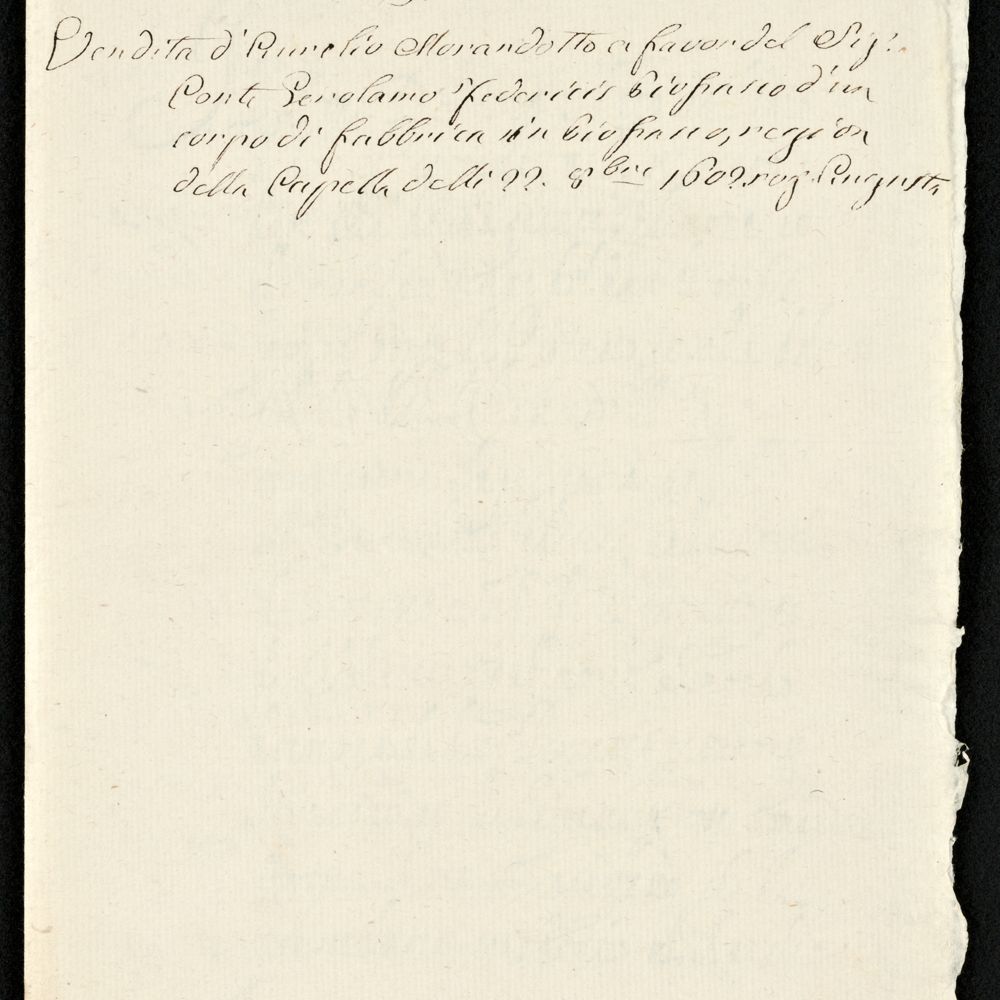 Vendita d'Aurelio Morandotto a favor del Sig.r
Conte Gerolamo Federicis Biofrasio d'un
corpo di fabbrica in Biofrasio, region
della Capella delli 22. 8bre 1602. rog. Augusta